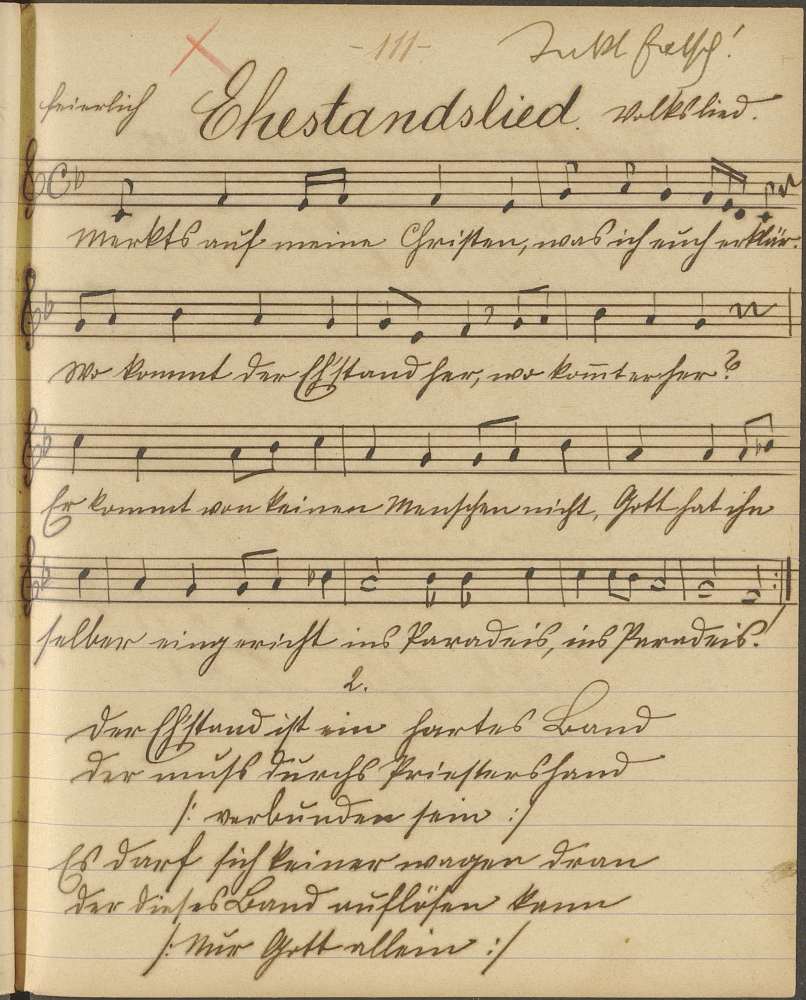 - 111 -
falsch!
feierlich Ehestandslied. Volkslied.
Merkts auf meine Christen, was ich euch erklär.
Wo kommt der Eh'stand her, wo kom̄t er her?
Er kommt von keinen Menschen nicht, Gott hat ihn
selber eingericht ins Paradeis, ins Paradeis!
2.
Der Eh'stand ist ein hartes Band
der muß durchs Priestershand
/: verbunden sein :/
Es darf sich keiner wagen dran
der dieses Band auflösen kann
/: Nur Gott allein :/